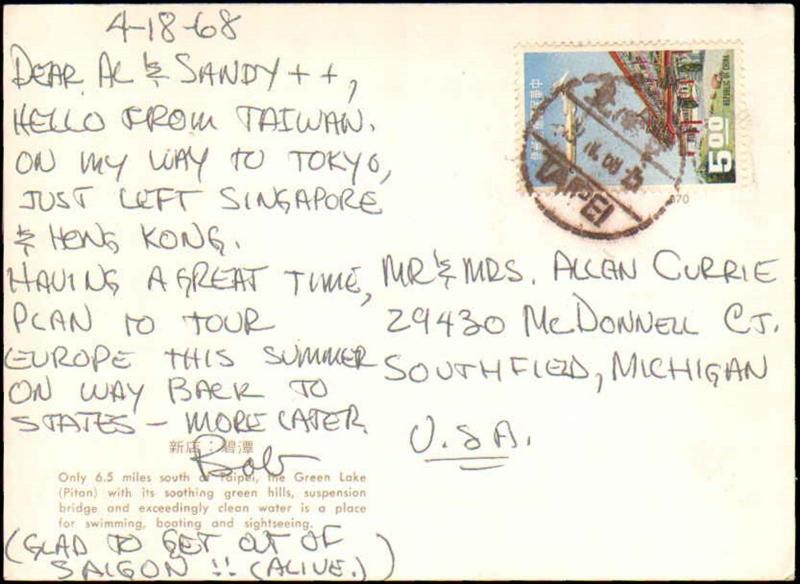 4-18-68
DEAR AL & SANDY ++,
HELLO FROM TAIWAN.
ON MY WAY TO TOKYO,
JUST LEFT SINGAPORE
& HONG KONG.
HAVING A GREAT TIME,
PLAN TO TOUR
EUROPE THIS SUMMER
ON WAY BACK TO
STATES – MORE LATER.
Bob
新店：碧潭
Only 6.5 miles south of Taipei, the Green Lake
(Pitan) with its soothing green hills, suspension
bridge and exceedingly clean water is a place
for swimming, boating and sightseeing.
(GLAD TO GET OUT OF
SAIGON !! (ALIVE.))
REPUBLIC OF CHINA
500
TAIPEI
MR & MRS. ALLAN CURRIE
29430 McDONNELL CT.
SOUTHFIELD, MICHIGAN
U.S.A.